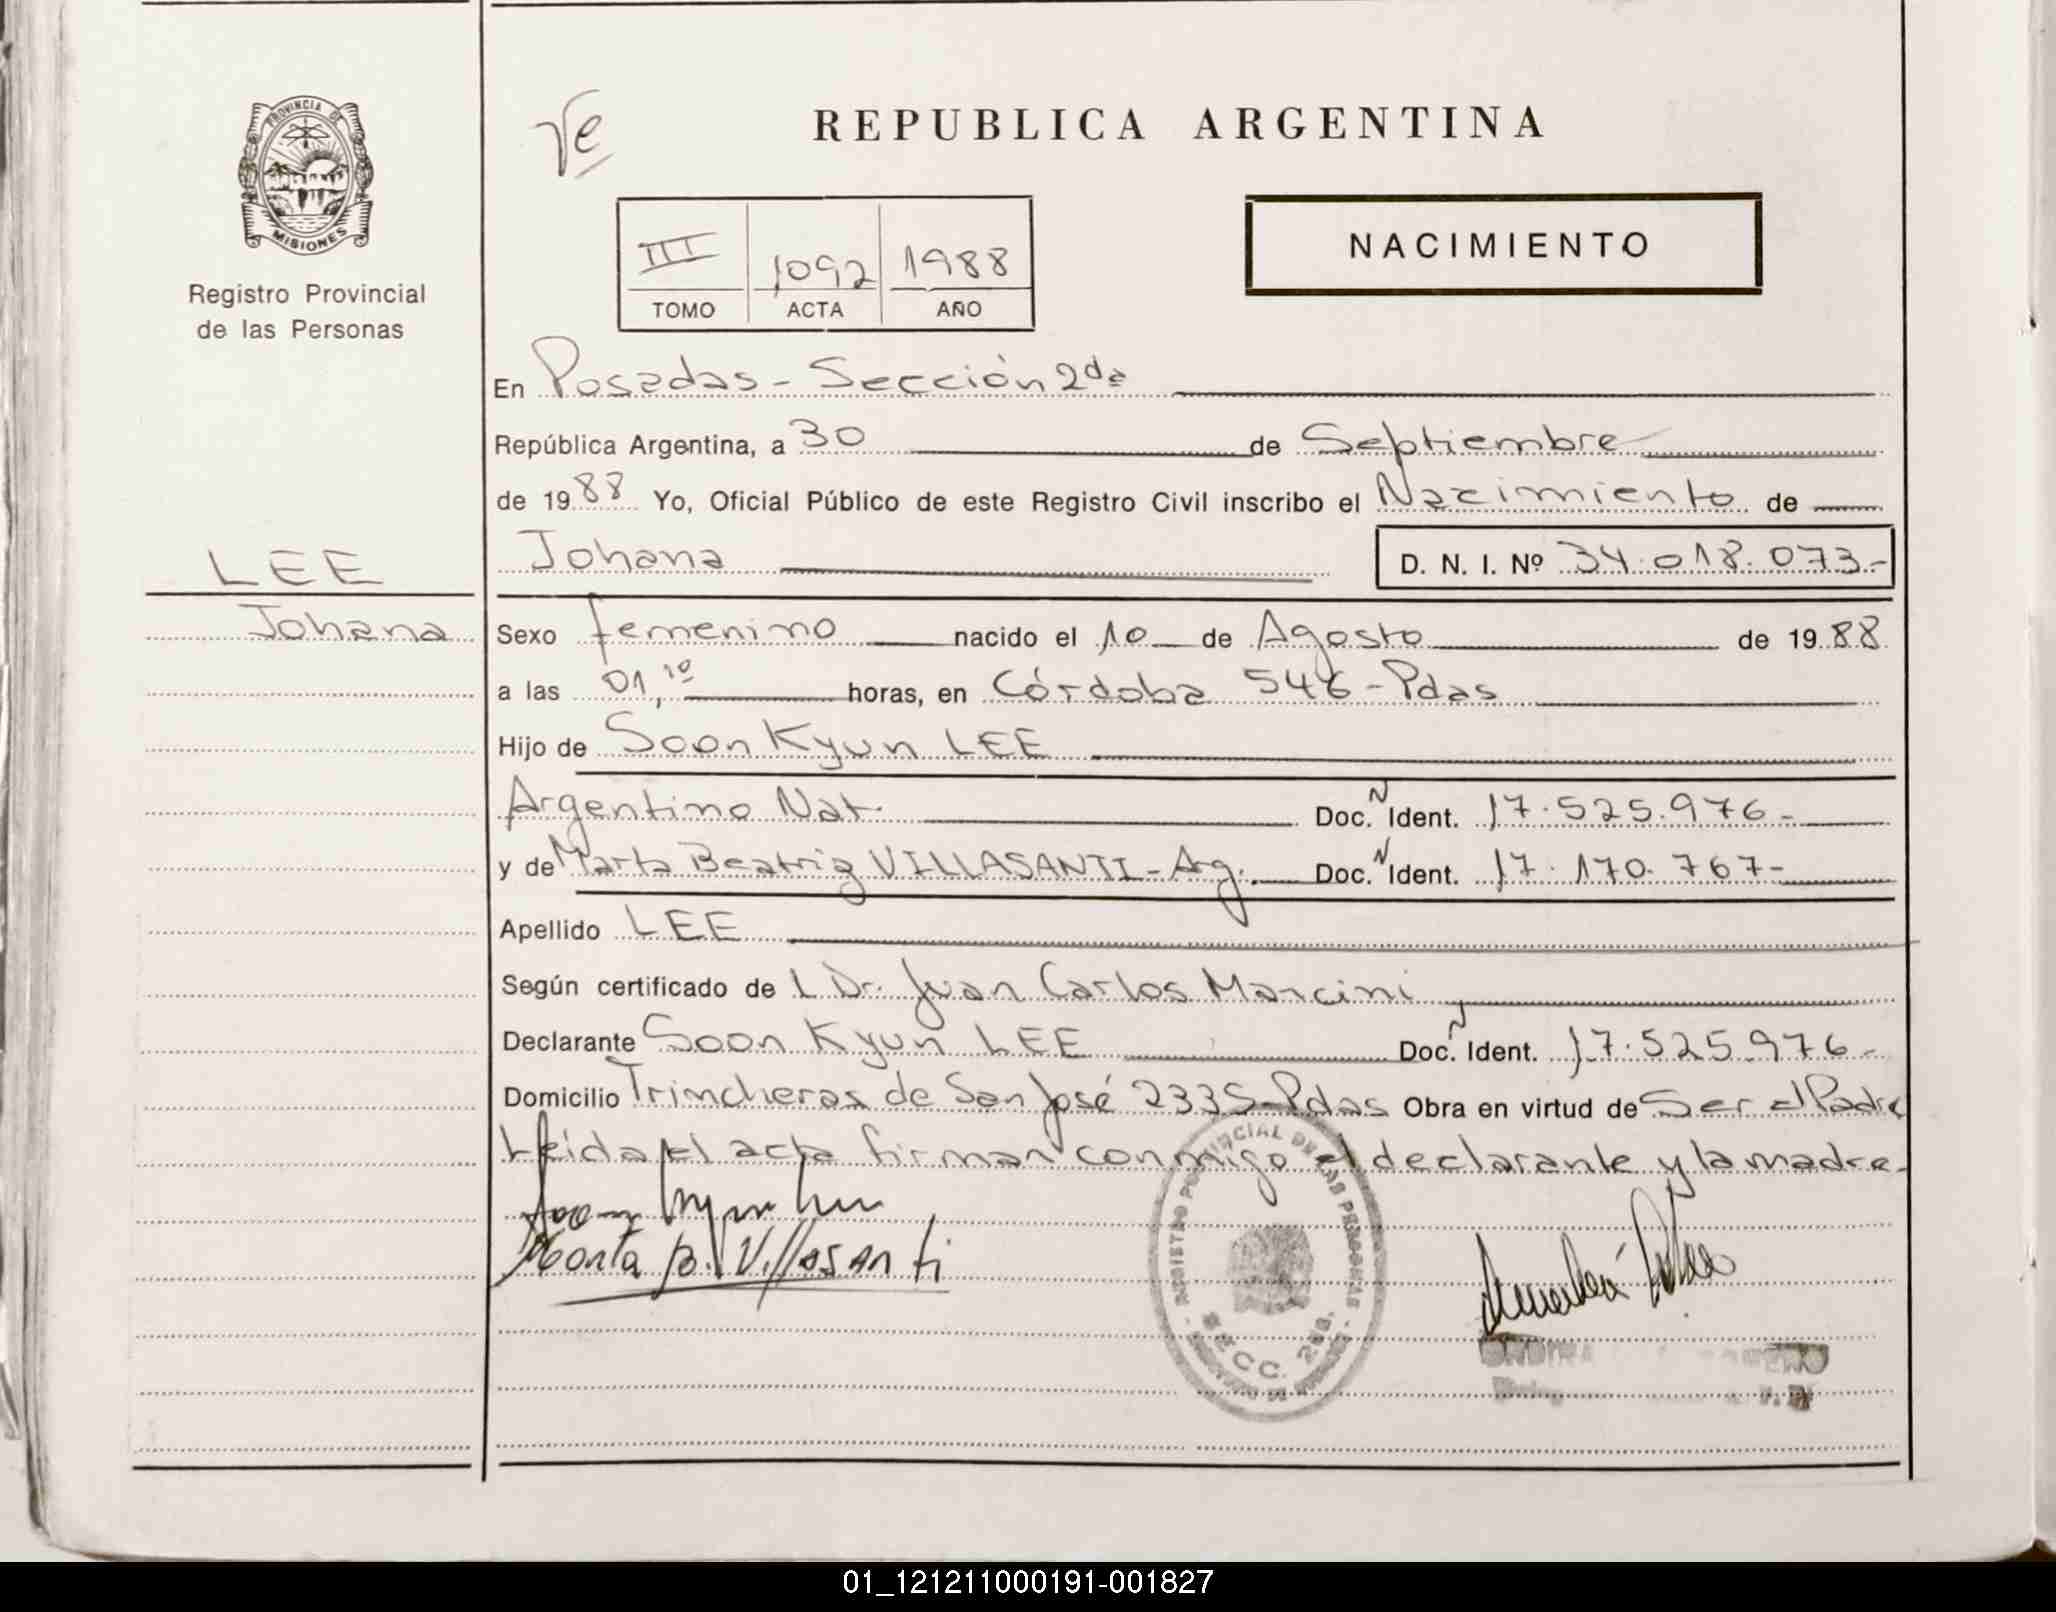 PROVINCIA DE
MISIONES
Registro Provincial
de las Personas
LEE
Johana
REPUBLICA ARGENTINA
NACIMIENTO
III 1092 1988
TOMO ACTA AÑO
En Posadas - Sección 2da
República Argentina, a 30 de Septiembre
de 1988 Yo, Oficial Público de este Registro Civil inscribo el Nacimiento de
Johana D. N. I. Nº 34.018.073-
Sexo femenino nacido el 10 de Agosto de 1988
a las 01,10 horas, en Córdoba 546 - Pdas
Hijo de Soon Kyun LEE
Argentino Nat. Doc. N Ident. 17.525.976-
y de Marta Beatriz VILLASANTI - Arg. Doc. N Ident. 17.170.767-
Apellido LEE
Según certificado de L Dr. Juan Carlos Mancini
Declarante Soon Kyun LEE Doc. N Ident. 17.525.976-
Domicilio Trincheras de San José 2335 - Pdas Obra en virtud de Ser el Padre
Leída el acta firman conmigo el declarante y la madre.
Marta B. Villasanti
REGISTRO PROVINCIAL DE LAS PERSONAS
SECC. 2da.
01_121211000191-001827